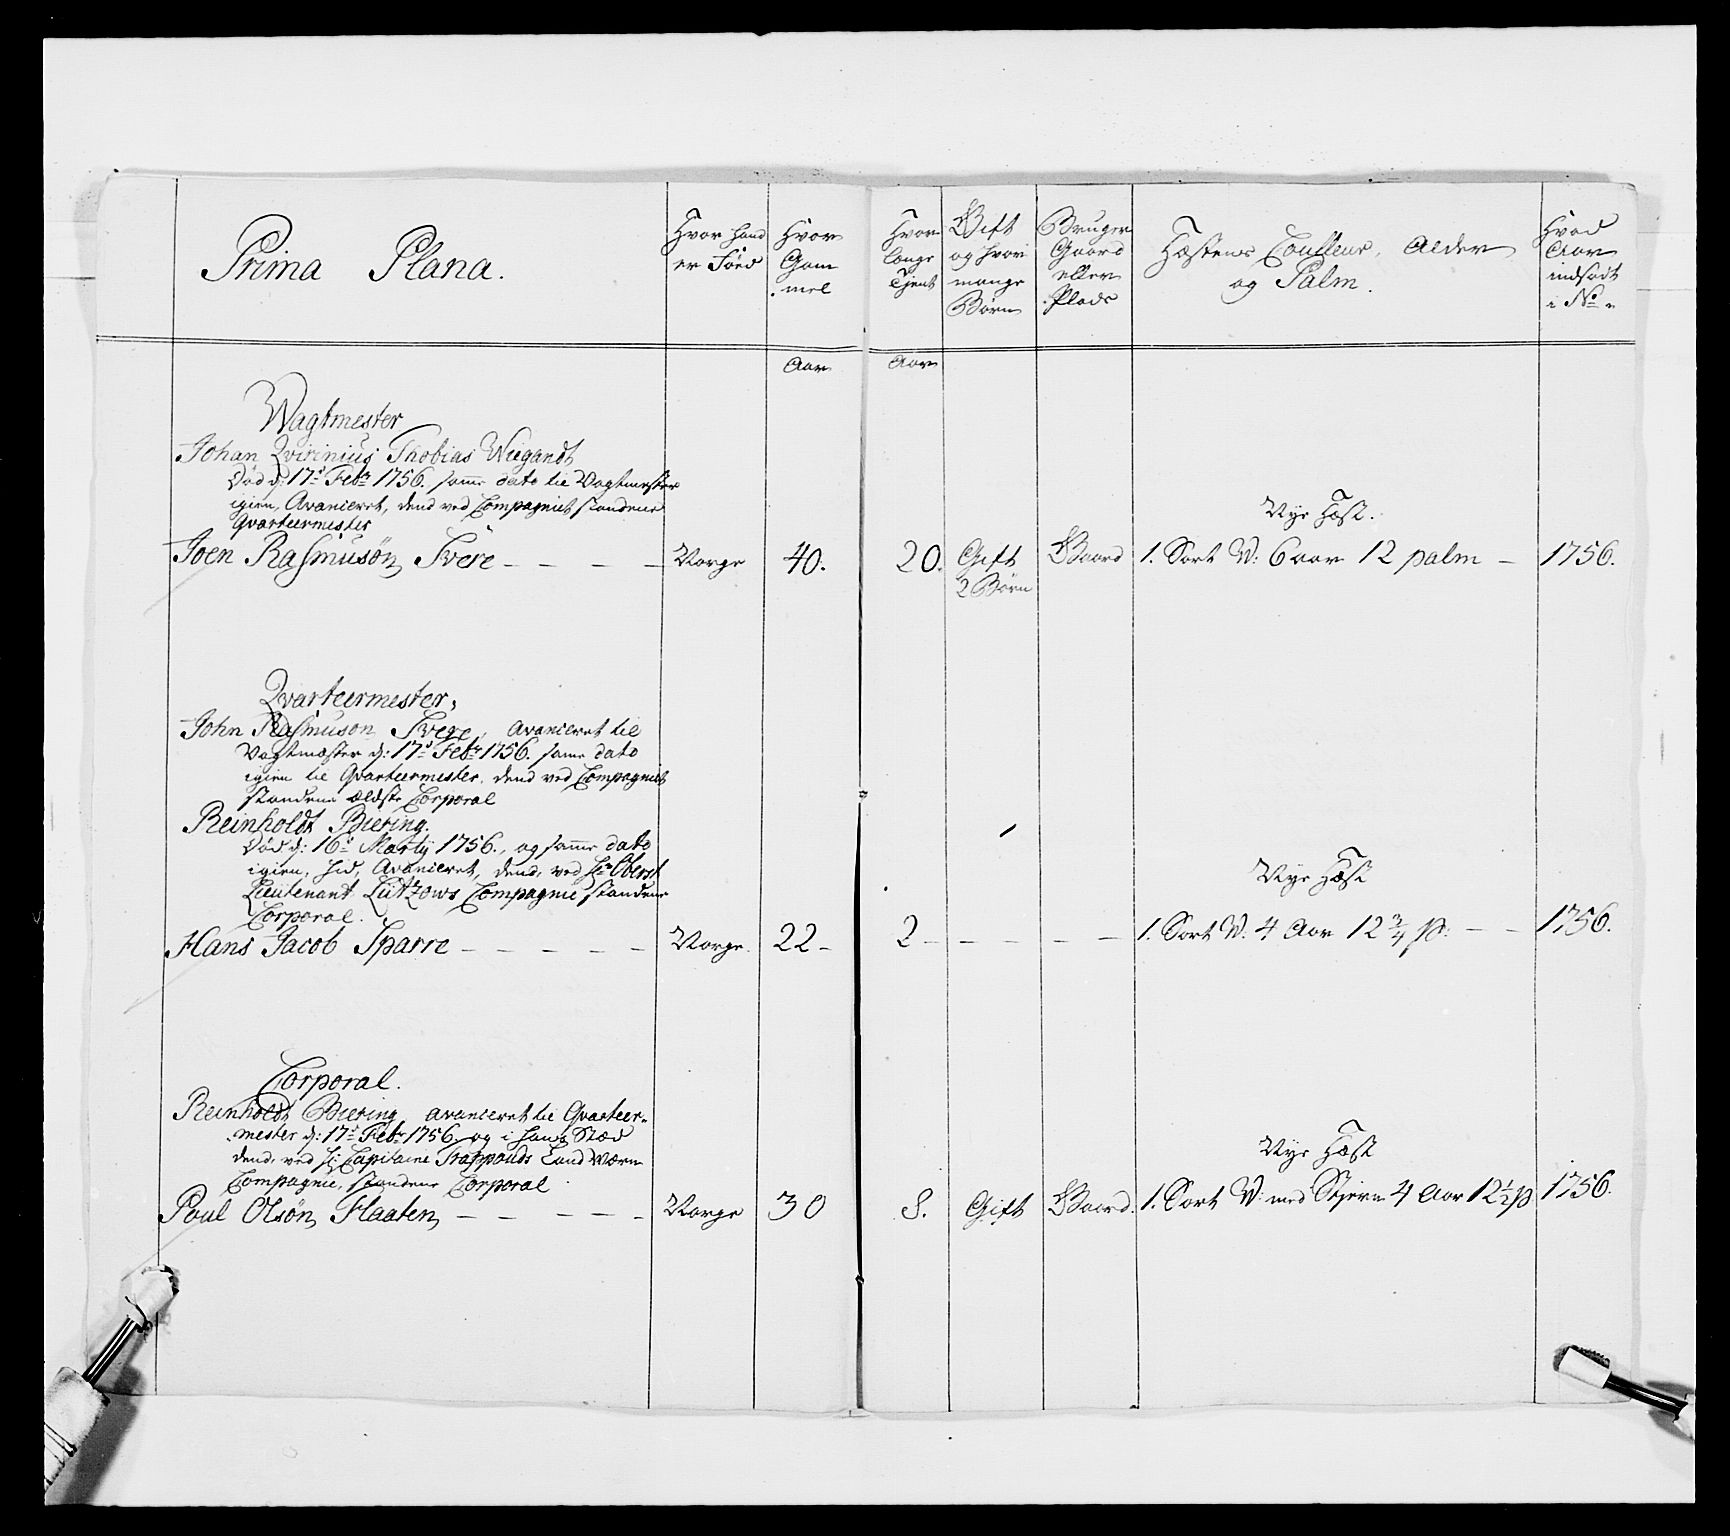 Prima Plana.
Hvor hand
er Föed
Hvor
Gam
mel
Hvor
længe
Tjent
Gift
og hvor
mange
Börn
Bruger
Gaard
eller
Plads
Hæstens Coulleur, Alder
og Palm.
Hvad
Aar
indsadt
i No
Aar
Aar
Wagtmester
Johan Qvirinius Thobias Wiegandt
Död d: 17de Febr 1756. samme dato til Vagtmester
igien, Avanceret, dend ved Compagniet staaende
Qvarteermester
Nye Hæst.
Joen Rasmusön Svere - - - - Norge 40. 20. Gift Gaard 1. Sort W: 6 aar 12 palm - 1756.
2 Börn
Qvarteermester,
John Rasmuson Svere, avanceret til
Vagtmæster d: 17de Febr 1756. samme dato
igien til Qvarteermester, dend ved Compagniet
staaende ældste Corporal
Reinholdt Biering.
Död d: 16de Martij 1756., og samme dato
igien, hid, Avanceret, dend, ved Hr Oberst
Lieutenant Lützows Compagnie staaende
Corporal.
Nye Hæst
Hans Jacob Sparre - - - - - Norge. 22 - 2 - - - - - 1. Sort W. 4 Aar 12 3/4 p: - - 1756.
Corporal.
Reinholdt Biering, avanceret til Qvarteer-
mester d: 17de Febr 1756. og i hans Stæd
dend, ved Hr Capitaine Trappauds Land Værn
Compagnie, staaende Corporal.
Nye Hæst
Poul Olsön Flaaten - - - - - Norge 30 8. Gift Gaard. 1. Sort W: med Stjerne 4 Aar 12 1/2 p 1756.